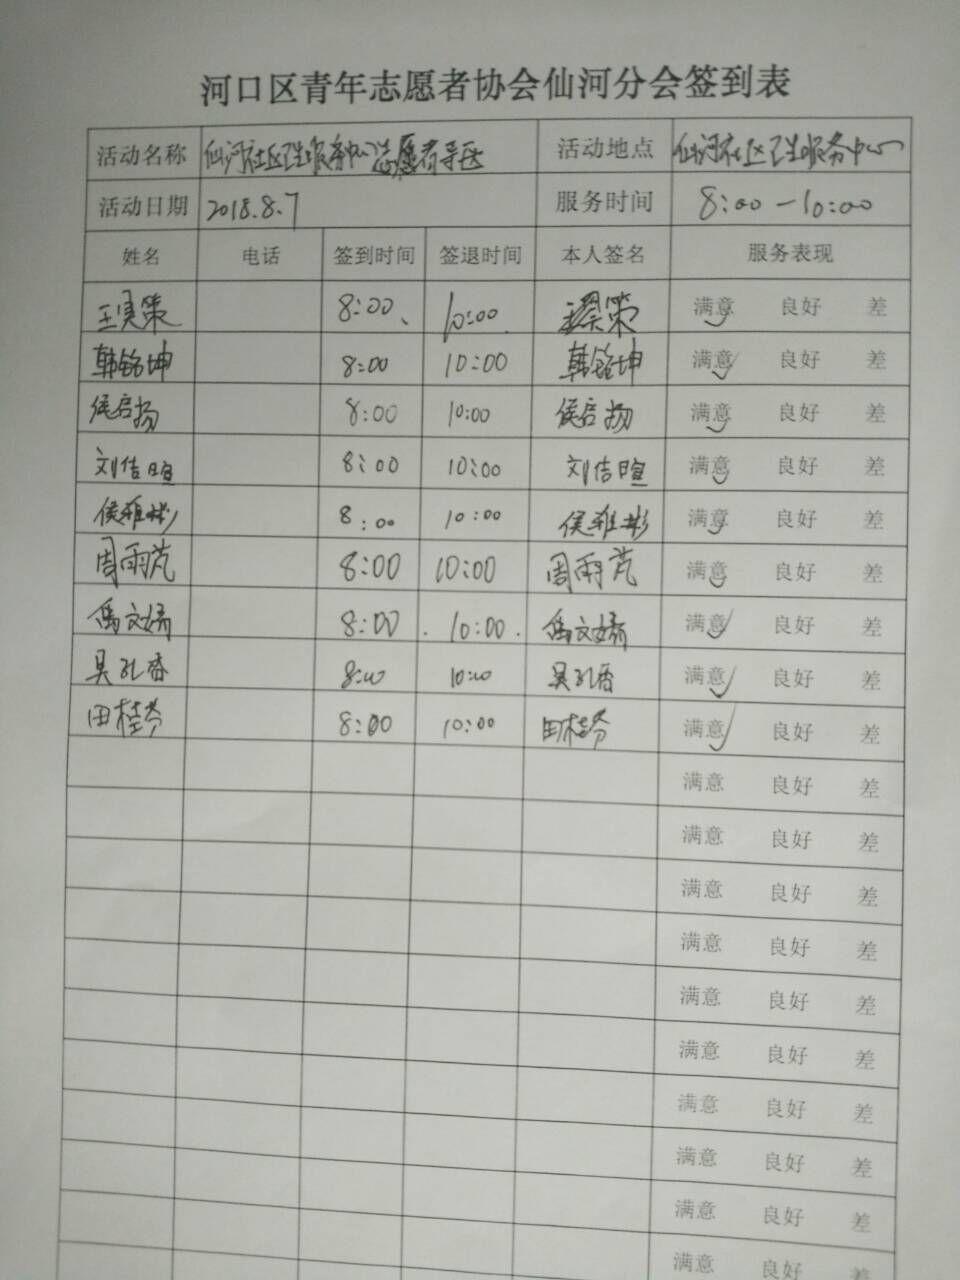 河口区青年志愿者协会仙河分会签到表
活动名称 仙河社区卫生服务中心志愿者导医 活动地点 仙河社区卫生服务中心
活动日期 2018.8.7 服务时间 8:00-10:00
姓名 电话 签到时间 签退时间 本人签名 服务表现
8:00 10:00 满意 良好 差
韩铭坤 8:00 10:00 韩铭坤 满意 良好 差
侯启扬 8:00 10:00 侯启扬 满意 良好 差
刘佶暄 8:00 10:00 刘佶暄 满意 良好 差
侯雅彬 8:00 10:00 侯雅彬 满意 良好 差
周雨芃 8:00 10:00 周雨芃 满意 良好 差
8:00 10:00 满意 良好 差
吴孔香 8:00 10:00 吴孔香 满意 良好 差
田桂芩 8:00 10:00 田桂芩 满意 良好 差
满意 良好 差
满意 良好 差
满意 良好 差
满意 良好 差
满意 良好 差
满意 良好 差
满意 良好 差
满意 良好 差
满意 良好 差
满意 良好 差